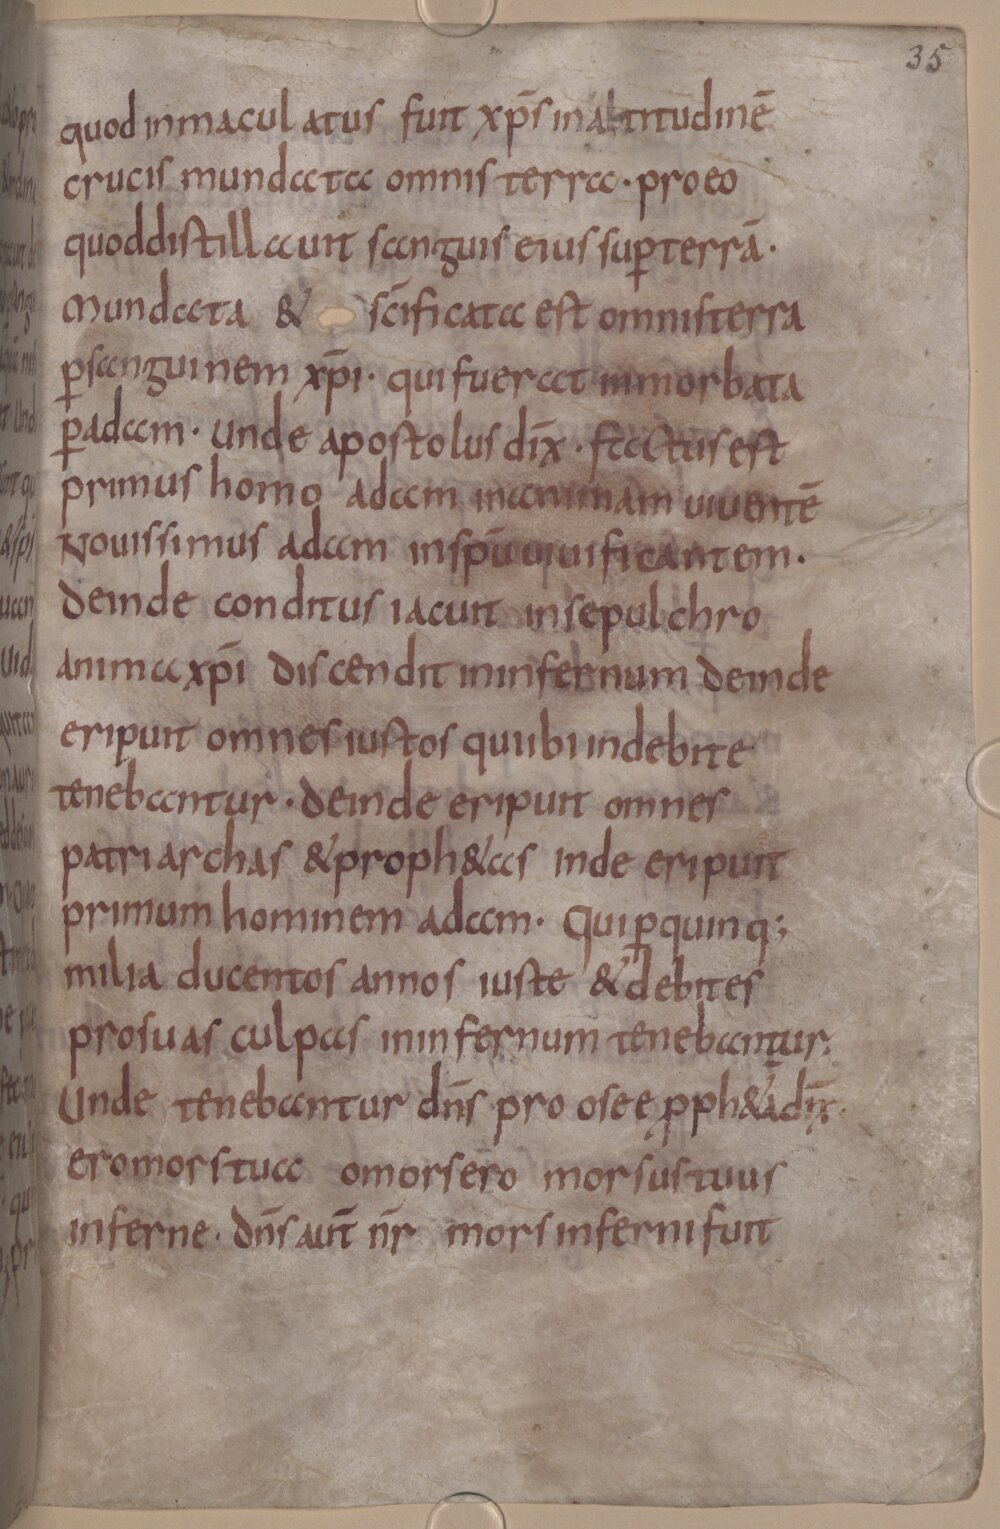 35
quod inmaculatus fuit xp̄s in altitudinē
crucis mundata omnis terra · pro eo
quod distillauit sanguis eius sup̱ terrā ·
Mundata & sc̄ificata est omnis terra
p̱ sanguinem xp̄i · qui fuerat inmorbata
p̱ adam · unde apostolus dix̄ · factus est
primus homo adam in animam uiuentē
Nouissimus adam in sp̄u uiuificantem ·
deinde conditus iacuit in sepulchro
anima xp̄i discendit in infernum deinde
eripuit omnes iustos qui ibi indebite
tenebantur · deinde eripuit omnes
patriarchas & proph&as inde eripuit
primum hominem adam · Qui p̱ quinq;
milia ducentos annos iuste & debites
pro suas culpas in infernum tenebantur.
Unde tenebantur dn̄s pro osee p̱ph&ā dix̄
ero mors tua o mors ero morsus tuus
inferne · dn̄s aut̄ nr̄ mors inferni fuit